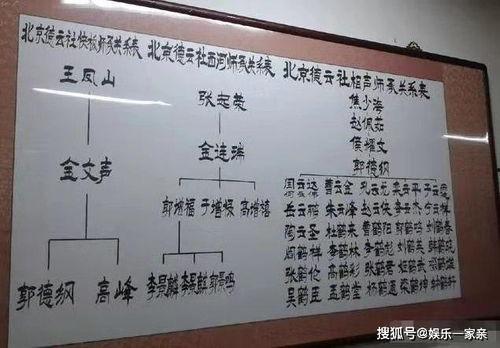 北京德云社快板师承关系表
王凤山
金文声
郭德纲 高峰
北京德云社西河师承关系表
张起荣
金连瑞
郭增福 于增 高增禧
李景麟 郭景鸣
北京德云社相声师承关系表
焦少海
赵佩茹
侯耀文
郭德纲
曹云金 孔云龙 栾云平 于云霆
岳云鹏 朱云峰 赵云侠 李云杰 宁云祥
陶云圣
阎鹤祥 李鹤林
张鹤伦 高鹤彩 张鹤君
吴鹤臣 孟鹤堂 杨鹤通 梁鹤坤
搜狐号@娱乐一家亲